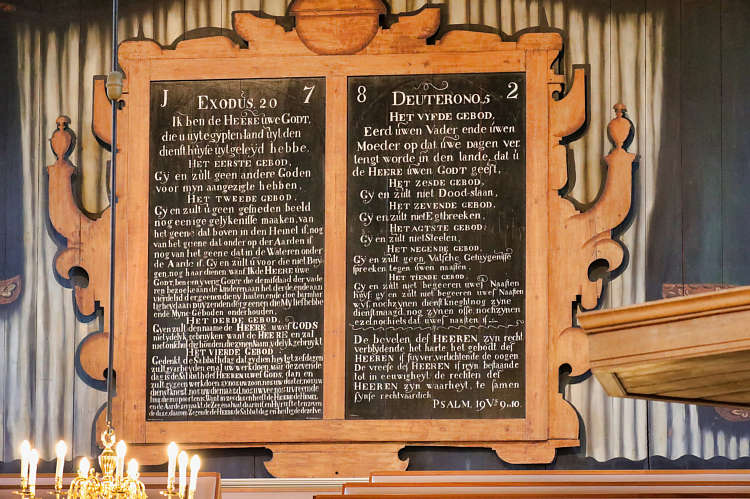 J 7
EXODUS. 20
Ik ben de HEERE uwe GODT,
die u uytegyptenland uyt den
diensthuyse uytgeleyd hebbe.
HET EERSTE GEBOD,
Gy en zult geen andere Goden
voor myn aangezigte hebben,
HET TWEEDE GEBOD,
Gy en zult u geen gesneden beeld
nog eenige gelykenisse maaken, van
het geene dat boven in den Hemel is, nog
van het geene dat onder op der Aarden is
nog van het geene dat in de Wateren onder
de Aarde is. Gy en zult u voor die niet Buy-
gen, nog haar dienen want Ik de HEERE uwe
ende Myne Geboden onderhouden.
HET DERDE GEBOD,
Gy en zult den name de HEERE uwes GODS
niet ydelyk gebruyken want de HEERE en zal
HET VIERDE GEBOD
Gedenkt de Sabbathdag dat gy dien heyligt zes dagen
8 2
DEUTERONO. 5
HET VYFDE GEBOD,
Eerd uwen Vader ende uwen
Moeder op dat uwe Dagen ver
lengt worde in den lande, dat u
de HEERE uwen GODT geeft,
HET ZESDE GEBOD,
Gy en zult niet Dood-slaan,
HET ZEVENDE GEBOD,
Gy en zult niet Egtbreeken,
HET AGTSTE GEBOD,
Gy en zult niet Steelen,
HET NEGENDE GEBOD,
Gy en zult geen Valsche Getuygenisse
spreeken tegen uwen naasten,
HET TIENDE GEBOD,
Gy en zult niet begeeren uwes Naasten
huys, gy en zult niet begeeren uwes Naasten
wyf, noch zynen dienstknegt nog zyne
dienstmaagd, nog zynen osse, noch zynen
ezel, noch iets dat uwe naasten is
De bevelen des HEEREN zyn recht
verblydende het harte, het gebodt des
HEEREN is suyver, verlichtende de oogen
De vreese des HEEREN is reyn bestaande
tot in eeuwigheyt, de rechten des
HEEREN zyn waarheyt, te samen
zyn se rechtvaardich
PSALM, 19 Vs 9 en 10.